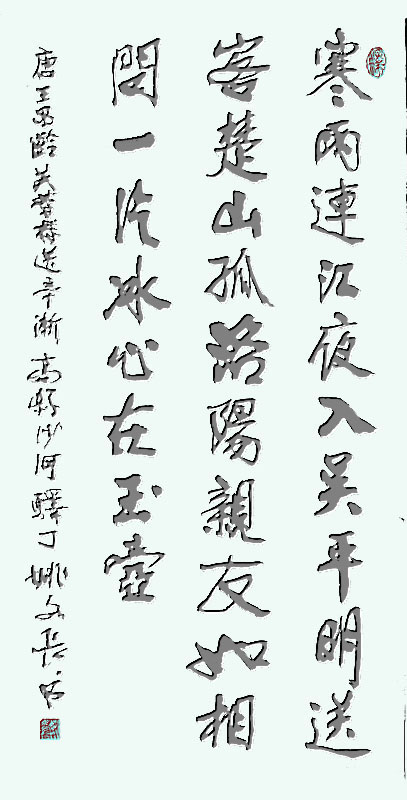 寒雨連江夜入吴平明送
客楚山孤洛陽親友如相
問一片冰心在玉壺
唐王昌齡芙蓉樓送辛漸沙河驛丁姚文長书